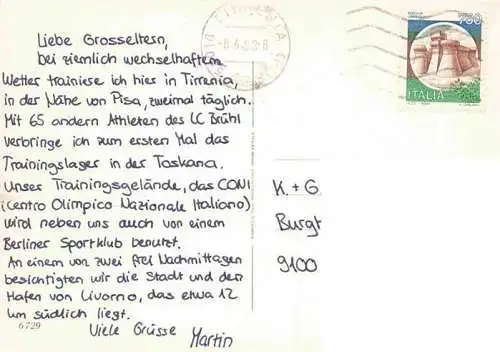 Liebe Grosseltern,
bei ziemlich wechselhaftem
Wetter trainiese ich hier in Tirrenia,
in der Nähe von Pisa, zweimal täglich.
Mit 65 andern Athleten des LC Brühl
verbringe ich zum ersten Mal das
Trainingslager in der Toskana.
Unser Trainingsgelände, das CONI
(Centro Olimpico Nazionale Italiano)
wird neben uns auch von einem
Berliner Sportklub benutzt.
An einem von zwei frei Nachmittagen
besichtigten wir die Stadt und den
Hafen von Livorno, das etwa 12
km südlich liegt.
Viele Grüsse
Martin
6729
K. + G.
Burgt
9100
ITALIA